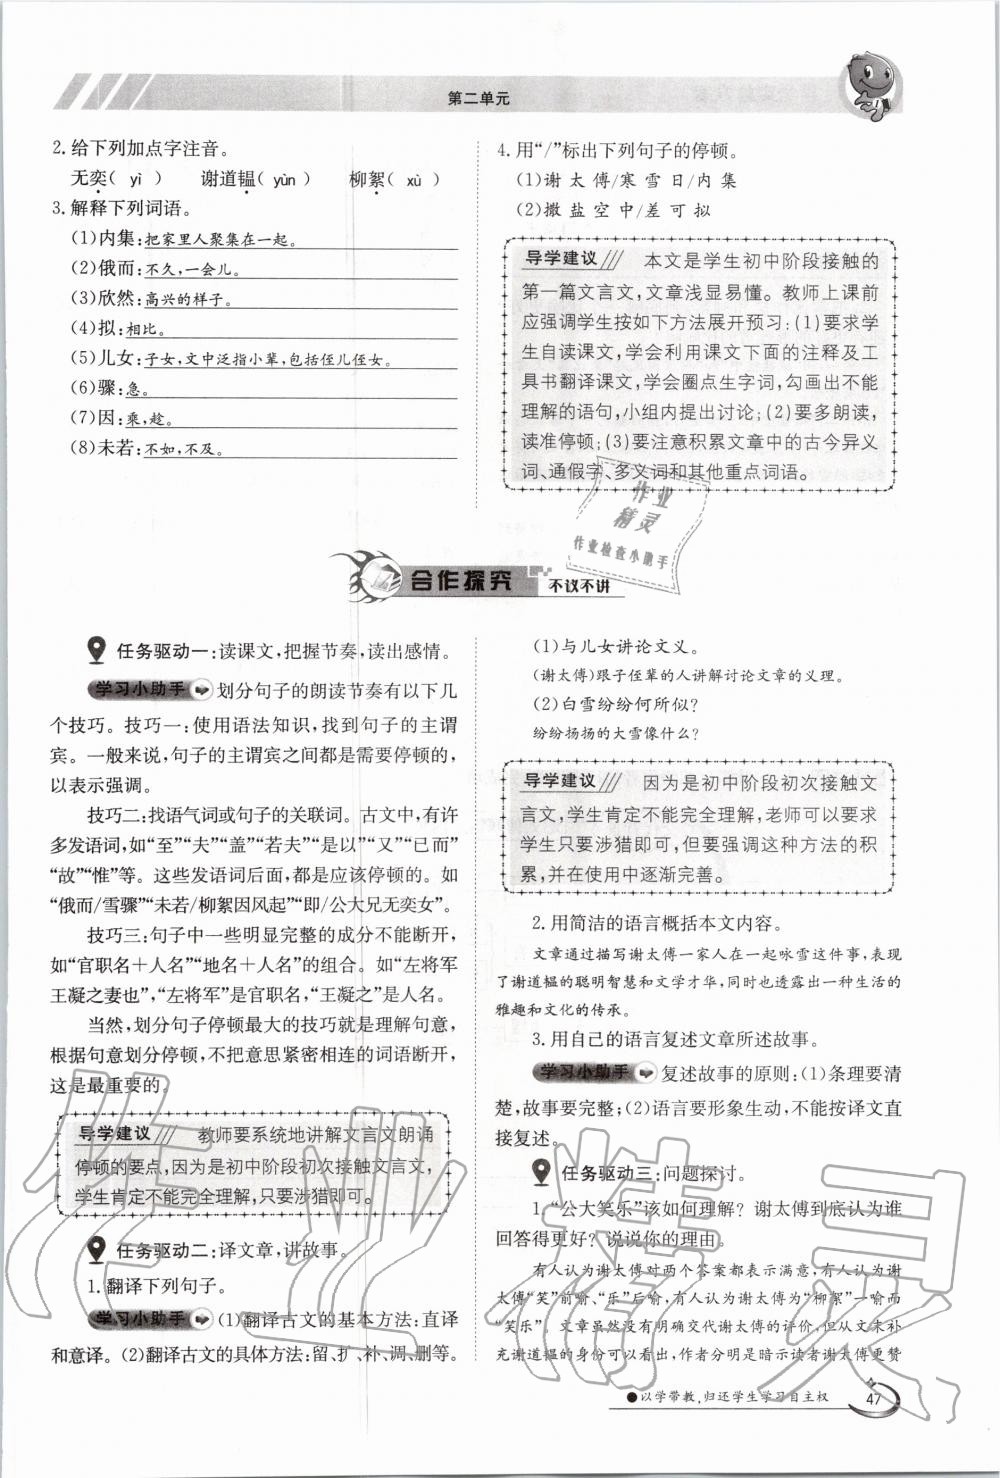 第二单元
2. 给下列加点字注音。
无奕( yì )　谢道韫( yùn )　柳絮( xù )
3. 解释下列词语。
(1)内集:把家里人聚集在一起。
(2)俄而:不久,一会儿。
(3)欣然:高兴的样子。
(4)拟:相比。
(5)儿女:子女,文中泛指小辈,包括侄儿侄女。
(6)骤:急。
(7)因:乘,趁。
(8)未若:不如,不及。
4. 用“/”标出下列句子的停顿。
(1)谢 太 傅/寒 雪 日/内 集
(2)撒 盐 空 中/差 可 拟
导学建议 本文是学生初中阶段接触的
第一篇文言文,文章浅显易懂。教师上课前
应强调学生按如下方法展开预习:(1)要求学
生自读课文,学会利用课文下面的注释及工
具书翻译课文,学会圈点生字词,勾画出不能
理解的语句,小组内提出讨论;(2)要多朗读,
读准停顿;(3)要注意积累文章中的古今异义
词、通假字、多义词和其他重点词语。
作业
精灵
作业检查小助手
合作探究 不议不讲
任务驱动一:读课文,把握节奏,读出感情。
学习小助手 划分句子的朗读节奏有以下几
个技巧。技巧一:使用语法知识,找到句子的主谓
宾。一般来说,句子的主谓宾之间都是需要停顿的,
以表示强调。
技巧二:找语气词或句子的关联词。古文中,有许
多发语词,如“至”“夫”“盖”“若夫”“是以”“又”“已而”
“故”“惟”等。这些发语词后面,都是应该停顿的。如
“俄而/雪骤”“未若/柳絮因风起”“即/公大兄无奕女”。
技巧三:句子中一些明显完整的成分不能断开,
如“官职名+人名”“地名+人名”的组合。如“左将军
王凝之妻也”,“左将军”是官职名,“王凝之”是人名。
当然,划分句子停顿最大的技巧就是理解句意,
根据句意划分停顿,不把意思紧密相连的词语断开,
这是最重要的。
导学建议 教师要系统地讲解文言文朗诵
停顿的要点,因为是初中阶段初次接触文言文,
学生肯定不能完全理解,只要涉猎即可。
任务驱动二:译文章,讲故事。
1. 翻译下列句子。
学习小助手 (1)翻译古文的基本方法:直译
和意译。(2)翻译古文的具体方法:留、扩、补、调、删等。
(1)与儿女讲论文义。
(谢太傅)跟子侄辈的人讲解讨论文章的义理。
(2)白雪纷纷何所似?
纷纷扬扬的大雪像什么?
导学建议 因为是初中阶段初次接触文
言文,学生肯定不能完全理解,老师可以要求
学生只要涉猎即可,但要强调这种方法的积
累,并在使用中逐渐完善。
2. 用简洁的语言概括本文内容。
文章通过描写谢太傅一家人在一起咏雪这件事,表现
了谢道韫的聪明智慧和文学才华,同时也透露出一种生活的
雅趣和文化的传承。
3. 用自己的语言复述文章所述故事。
学习小助手 复述故事的原则:(1)条理要清
楚,故事要完整;(2)语言要形象生动,不能按译文直
接复述。
任务驱动三:问题探讨。
1.“公大笑乐”该如何理解?谢太傅到底认为谁
回答得更好?说说你的理由。
有人认为谢太傅对两个答案都表示满意,有人认为谢
太傅“笑”前喻、“乐”后喻,有人认为谢太傅为“柳絮”一喻而
“笑乐”。文章虽然没有明确交代谢太傅的评价,但从文末补
充谢道韫的身份可以看出,作者分明是暗示读者谢太傅更赞
●以学带教,归还学生学习自主权 47
作业精灵